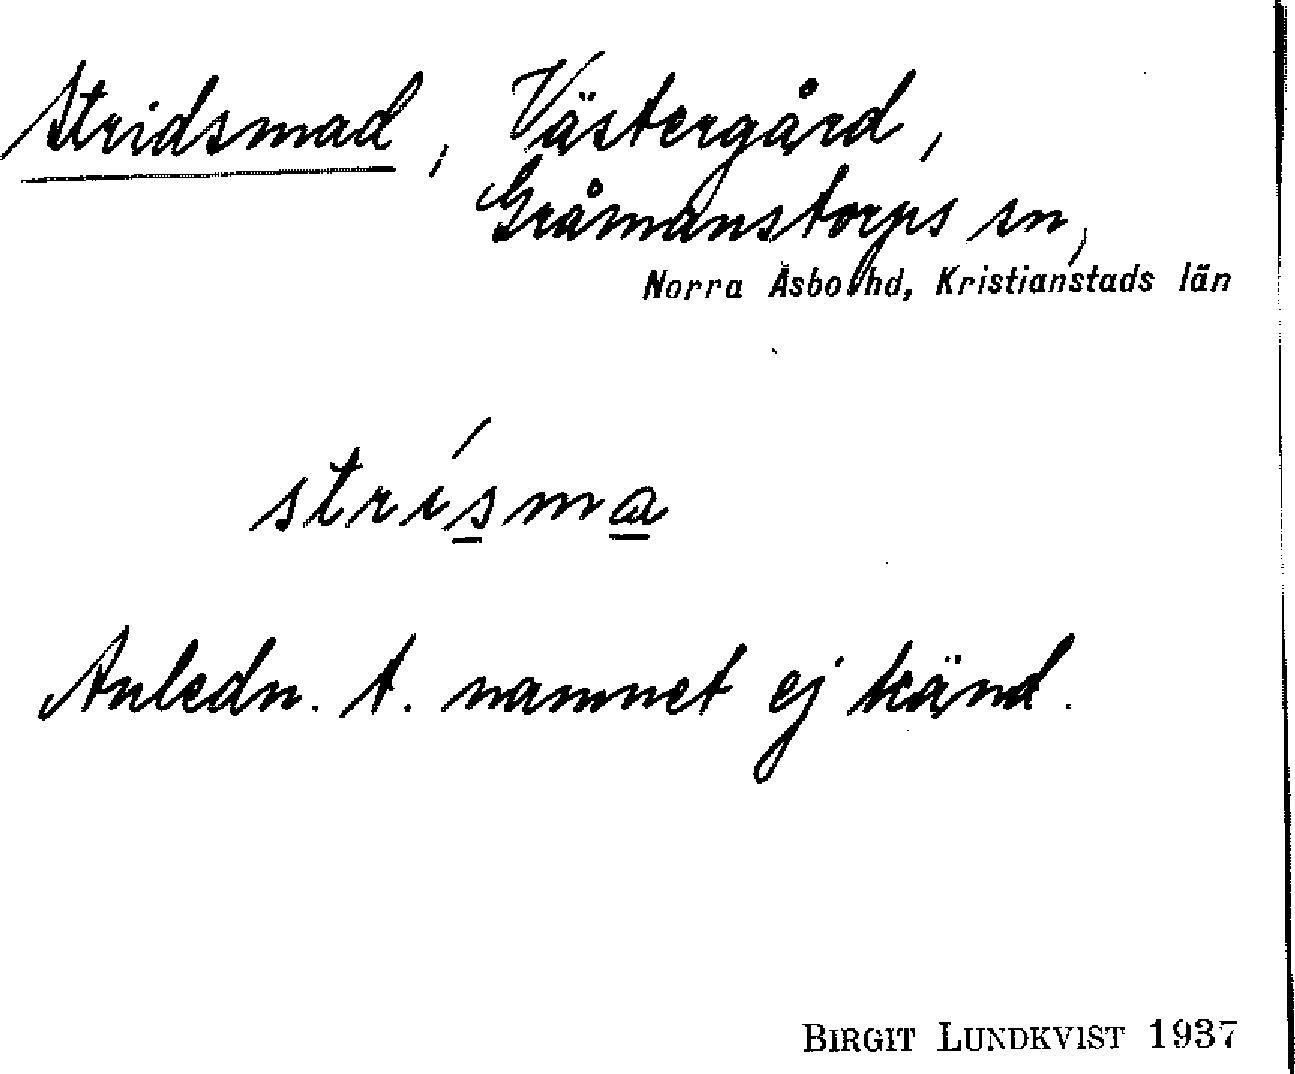 Stridsmad, Västergård,
Gråmanstorps sn,
Norra Åsbo hd, Kristianstads län
strísma
Anledn. t. namnet ej känd.
BIRGIT LUNDKVIST 1937